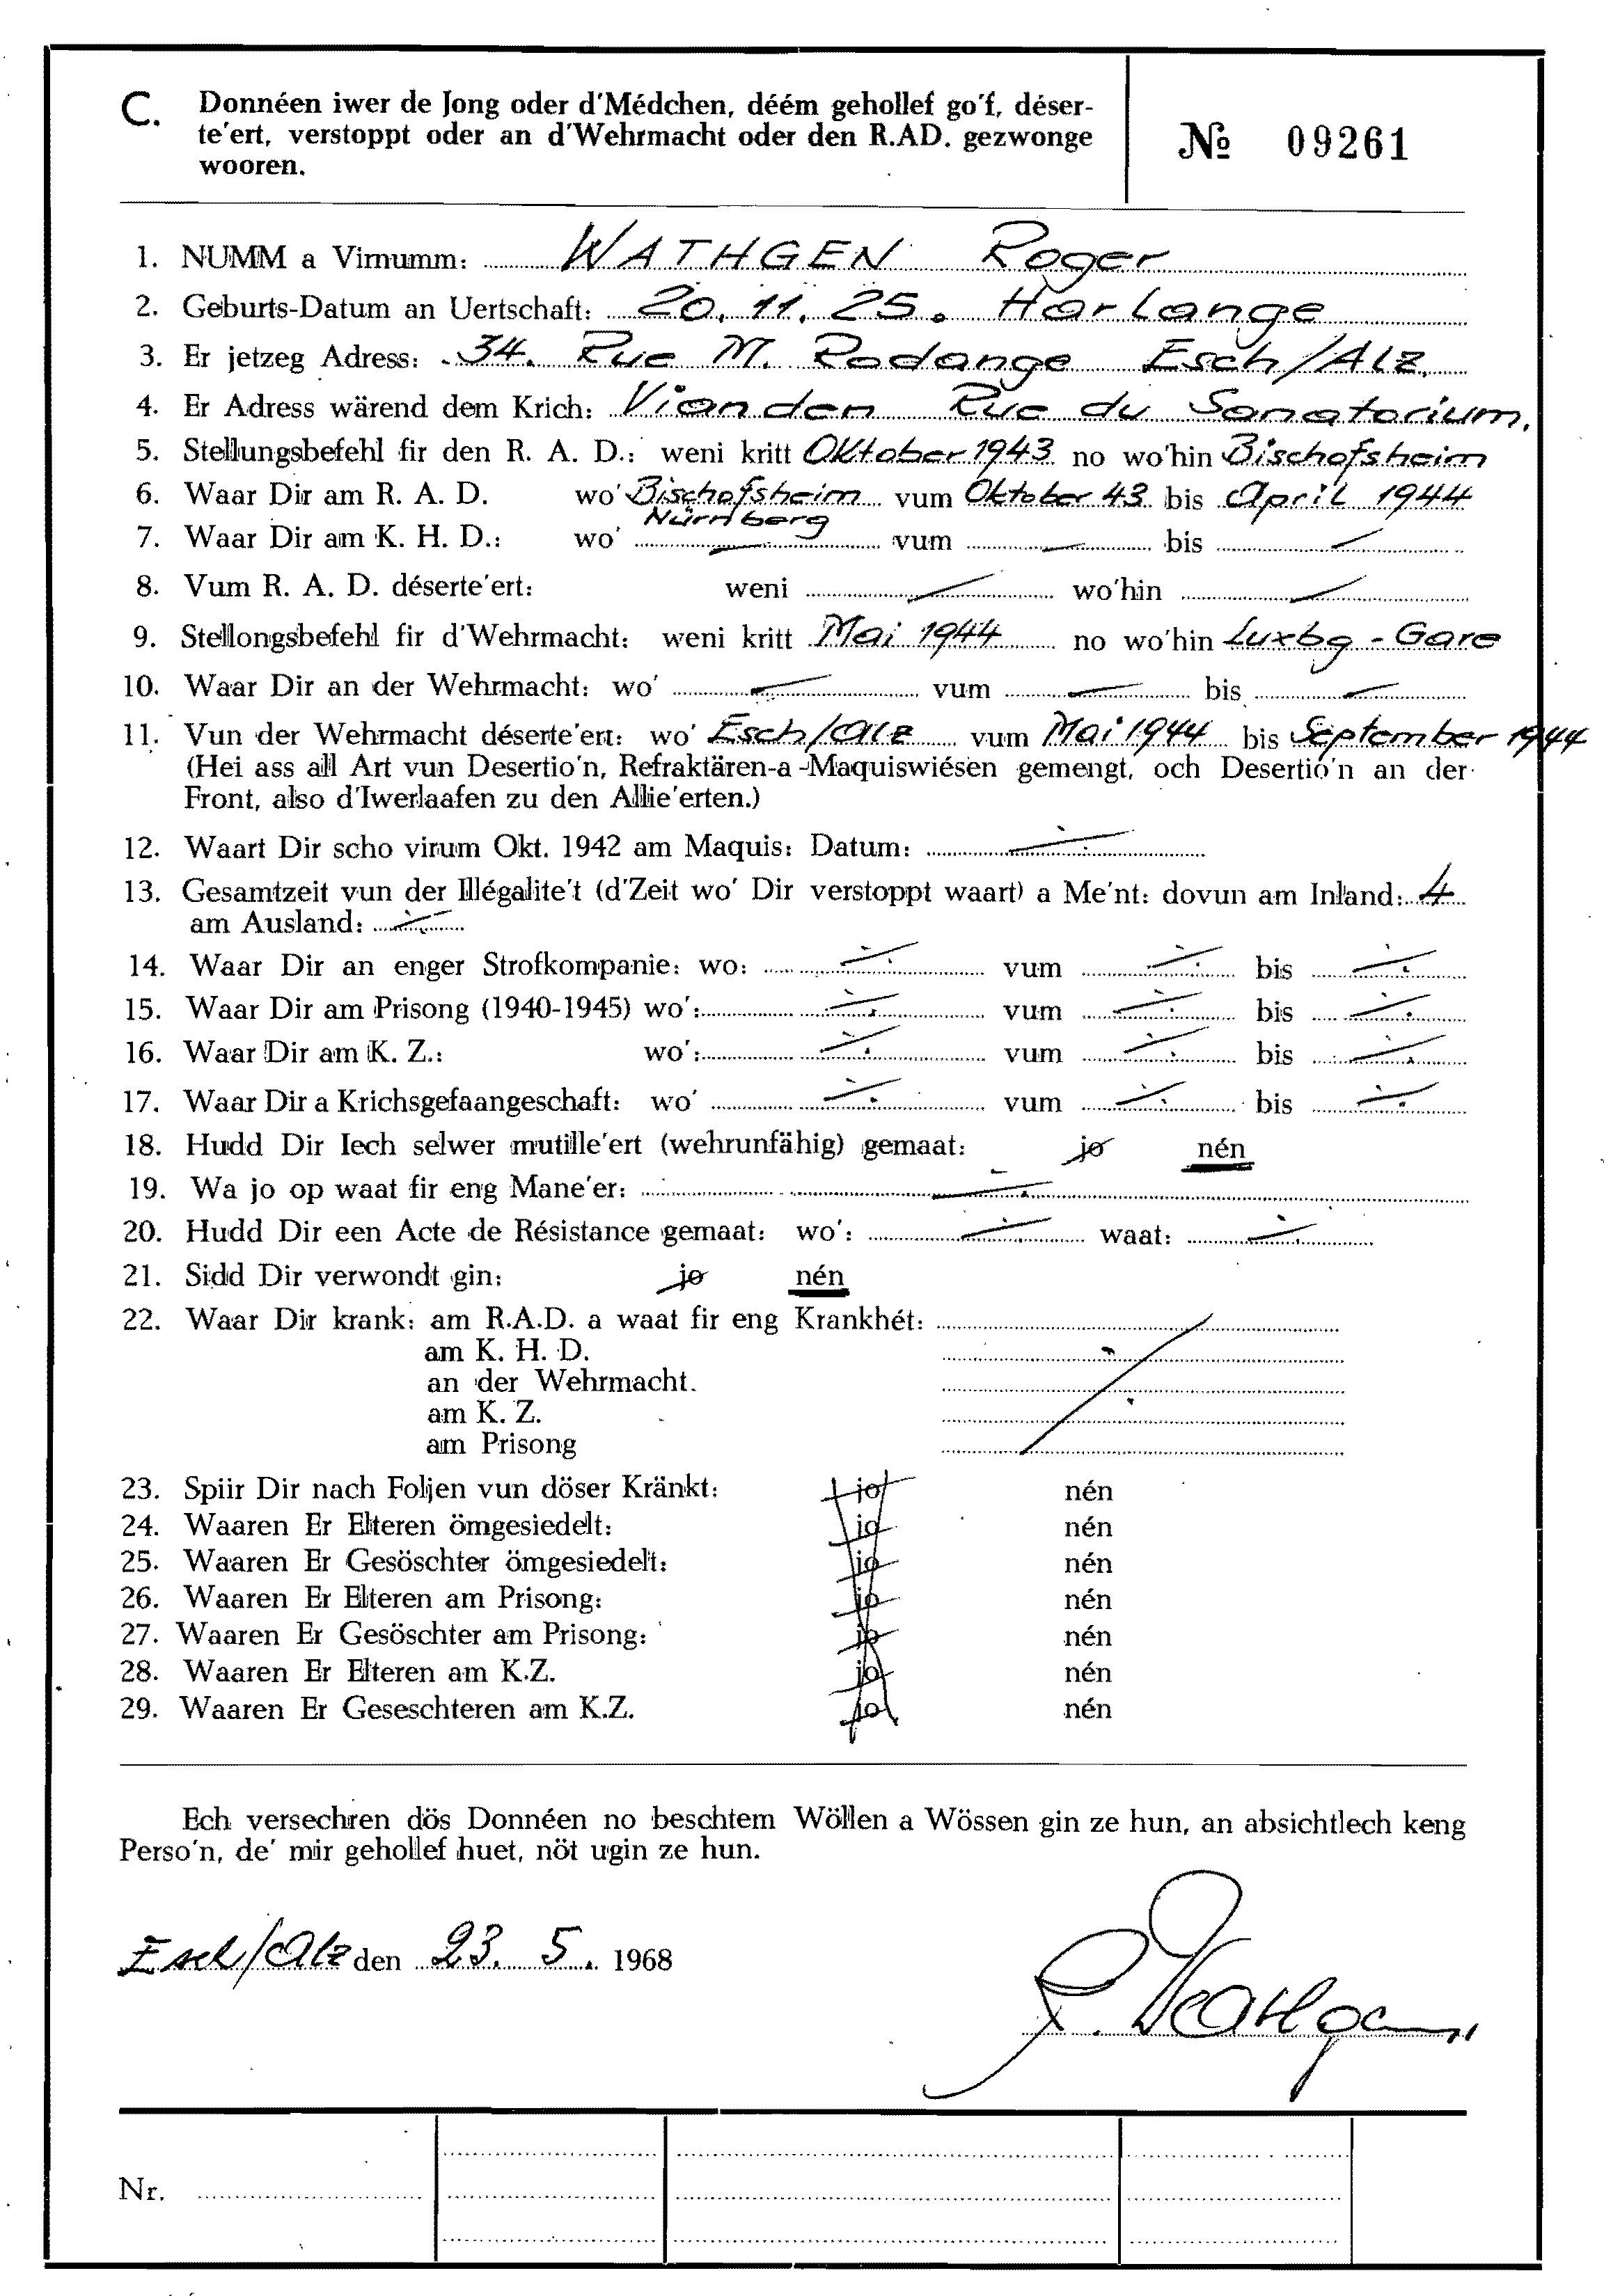 C. Donnéen iwer de Jong oder d'Médchen, déém gehollef go'f, déser-
te'ert, verstoppt oder an d'Wehrmacht oder den R.AD. gezwonge
wooren.
№ 09261
1. NUMM a Virnumm: WATHGEN Roger
2. Geburts-Datum an Uertschaft: 20. 11. 25. Harlange
3. Er jetzeg Adress: 34. Rue M. Rodange Esch/Alz.
4. Er Adress wärend dem Krich: Vianden Rue du Sanatorium.
5. Stellungsbefehl fir den R. A. D.: weni kritt Oktober 1943 no wo'hin Bischofsheim
6. Waar Dir am R. A. D. wo' Bischofsheim vum Oktober 43 bis April 1944
Nürnberg
7. Waar Dir am K. H. D.: wo' — vum — bis —
8. Vum R. A. D. déserte'ert: weni — wo'hin —
9. Stellongsbefehl fir d'Wehrmacht: weni kritt Mai 1944 no wo'hin Luxbg - Gare
10. Waar Dir an der Wehrmacht: wo' — vum — bis —
11. Vun der Wehrmacht déserte'ert: wo' Esch/Alz vum Mai 1944 bis September 1944
(Hei ass all Art vun Desertio'n, Refraktären-a-Maquiswiésen gemengt, och Desertio'n an der
Front, also d'Iwerlaafen zu den Allie'erten.)
12. Waart Dir scho virum Okt. 1942 am Maquis: Datum: ÷
13. Gesamtzeit vun der Illégalite't (d'Zeit wo' Dir verstoppt waart) a Me'nt: dovun am Inland: 4
am Ausland: ÷
14. Waar Dir an enger Strofkompanie: wo: ÷ vum ÷ bis ÷
15. Waar Dir am Prisong (1940-1945) wo': ÷ vum ÷ bis ÷
16. Waar Dir am K. Z.: wo': ÷ vum ÷ bis ÷
17. Waar Dir a Krichsgefaangeschaft: wo' ÷ vum ÷ bis ÷
18. Hudd Dir Iech selwer mutille'ert (wehrunfähig) gemaat: jo nén
19. Wa jo op waat fir eng Mane'er: ÷
20. Hudd Dir een Acte de Résistance gemaat: wo': ÷ waat: ÷
21. Sidd Dir verwondt gin: jo nén
22. Waar Dir krank: am R.A.D. a waat fir eng Krankhét:
am K. H. D.
an der Wehrmacht.
am K. Z.
am Prisong
23. Spiir Dir nach Foljen vun döser Kränkt: jo nén
24. Waaren Er Elteren ömgesiedelt: jo nén
25. Waaren Er Gesöschter ömgesiedelt: jo nén
26. Waaren Er Elteren am Prisong: jo nén
27. Waaren Er Gesöschter am Prisong: jo nén
28. Waaren Er Elteren am K.Z. jo nén
29. Waaren Er Geseschteren am K.Z. jo nén
Ech versechren dös Donnéen no beschtem Wöllen a Wössen gin ze hun, an absichtlech keng
Perso'n, de' mir gehollef huet, nöt ugin ze hun.
Esch/Alz den 23. 5. 1968
R. Wathgen
Nr.